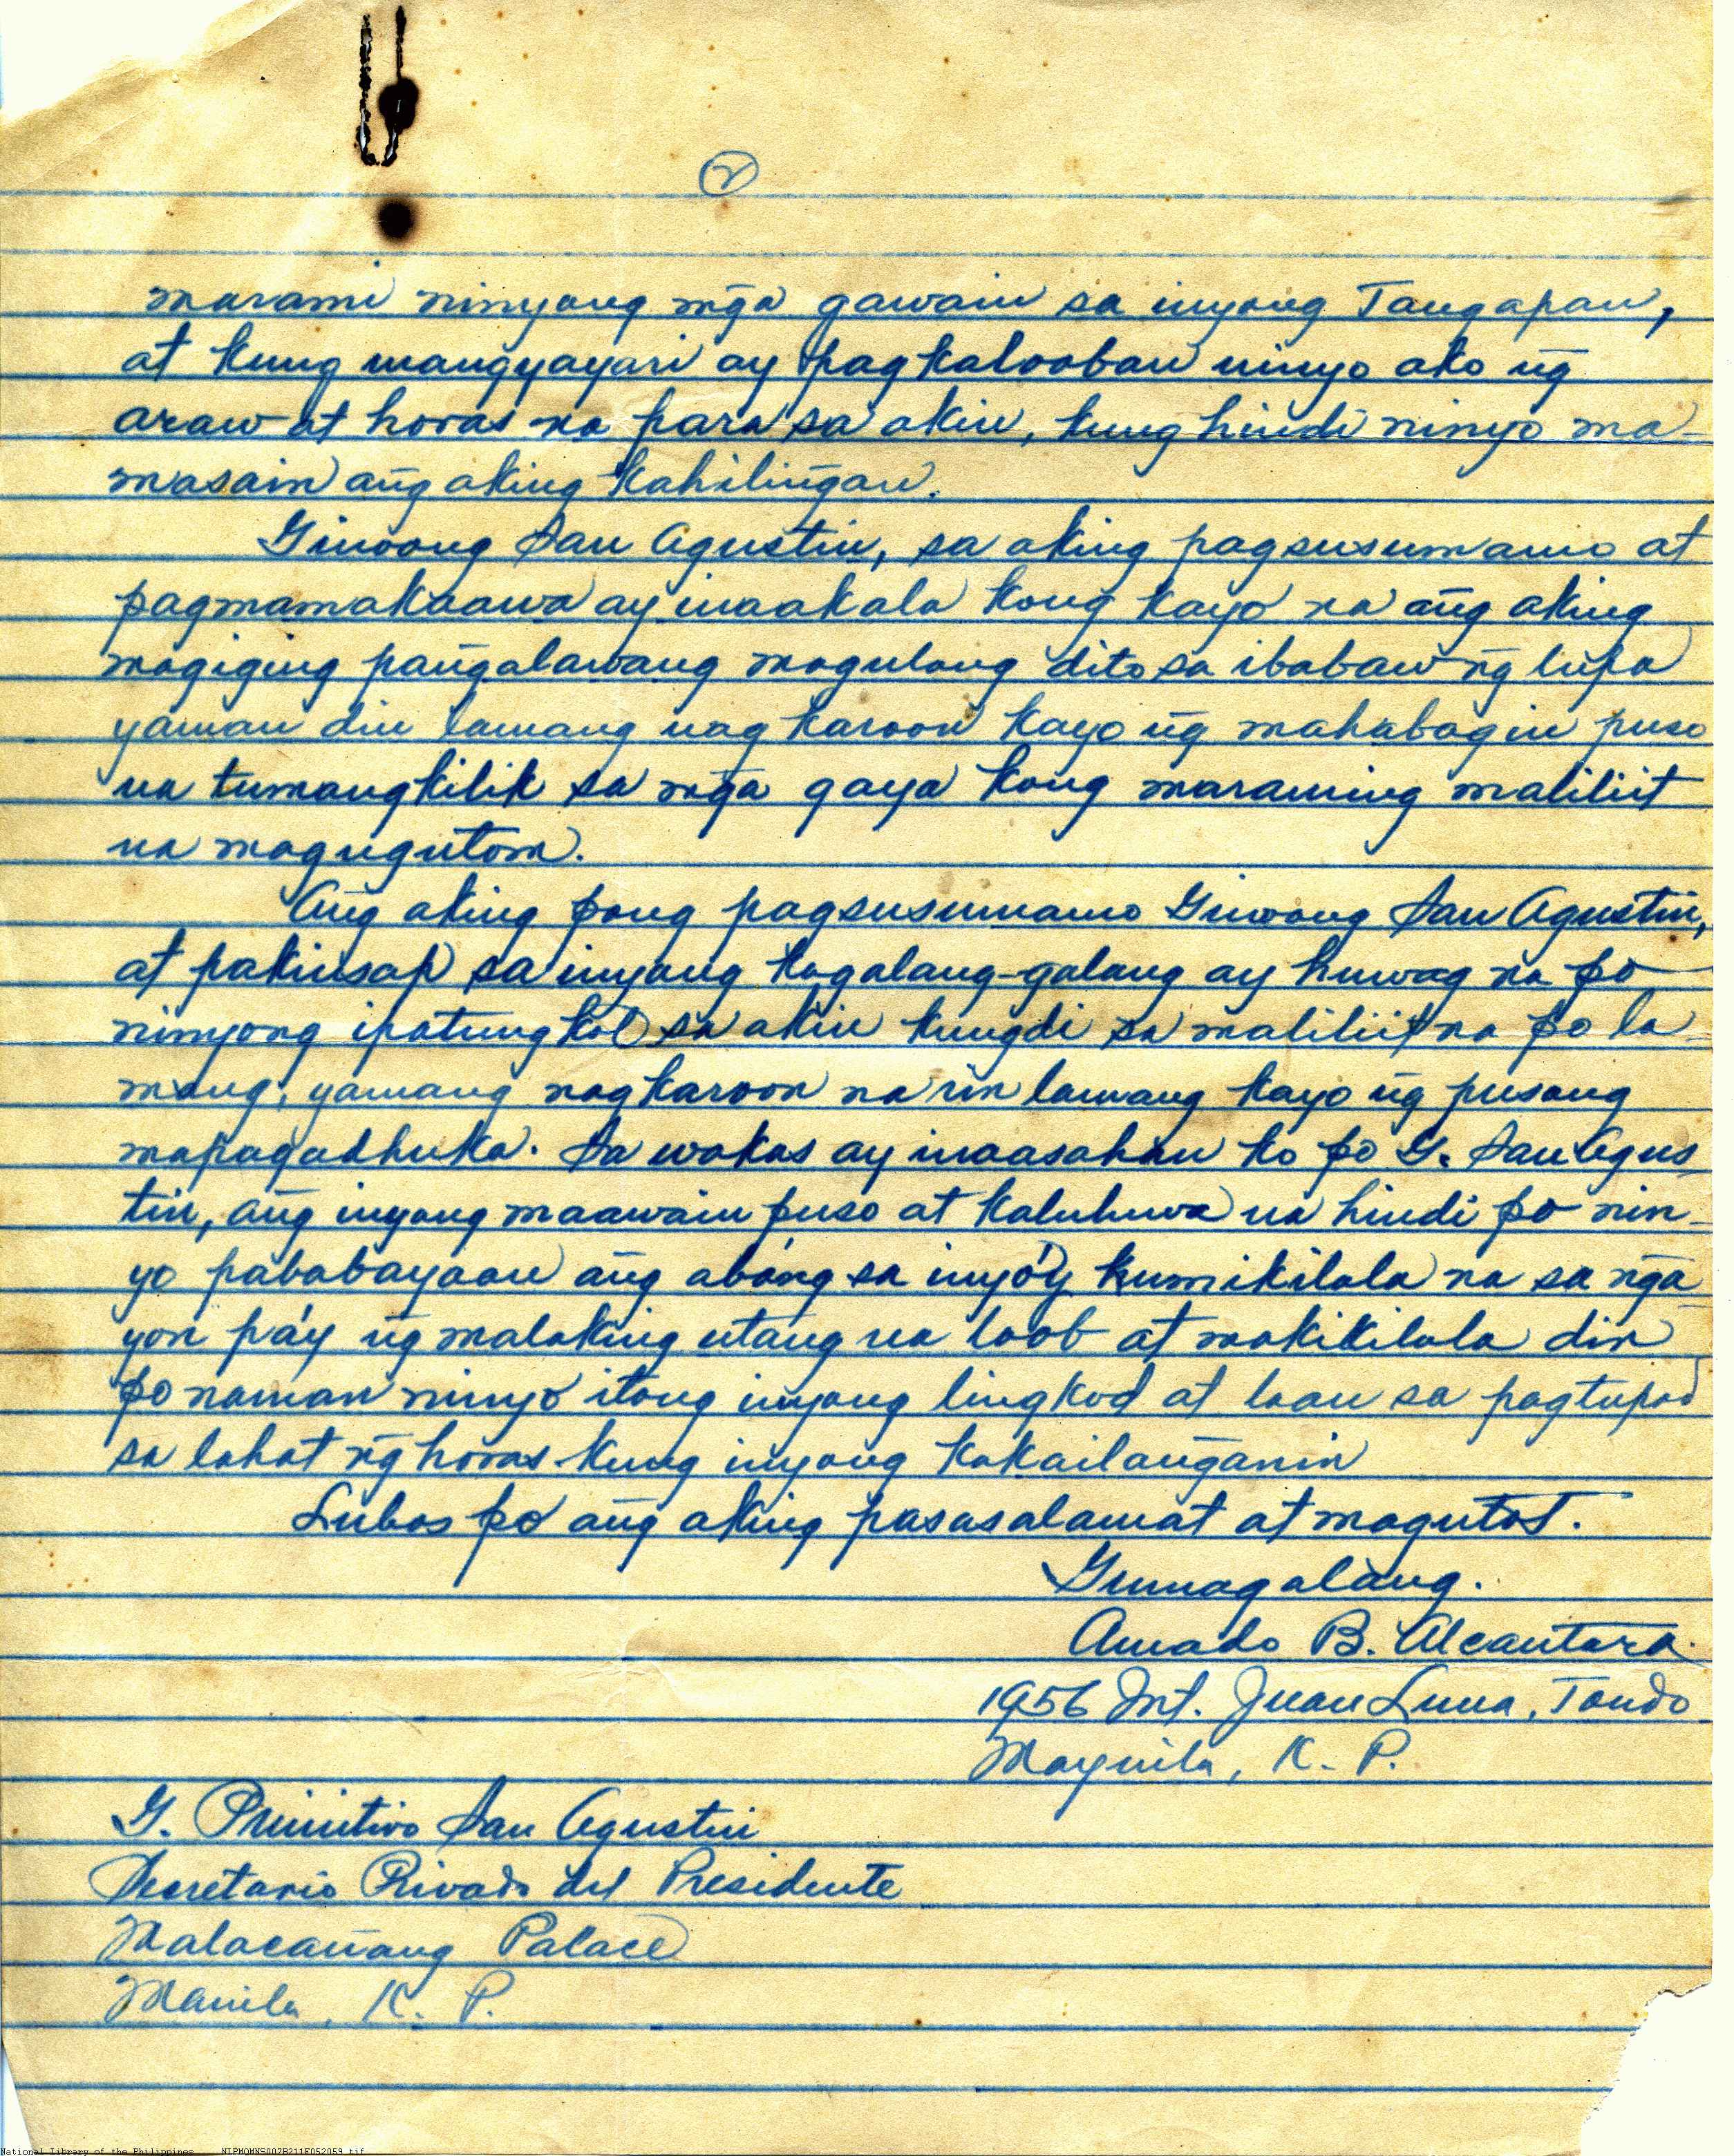 2
marami ninyong mg̃a gawain sa inyong Tangapan,
at kung mangyayari ay pagkalooban ninyo ako ng̃
araw at horas na para sa akin, kung hindi ninyo ma-
masain ang̃ aking kahiling̃an.
Ginoong San Agustin, sa aking pagsusumamo at
pagmamakaawa ay inaakala kong kayo na ang̃ aking
magiging pang̃alawang magulang dito sa ibabaw ng̃ lupa
yaman din lamang nagkaroon kayo ng̃ mahabagin puso
na tumangkilik sa mg̃a gaya kong maraming maliliit
na magugutom.
Ang̃ aking pong pagsusumamo Ginoong San Agustin,
at pakiusap sa inyong kagalang-galang ay huwag na po
ninyong ipatungkol sa akin kungdi sa maliliit na po la-
mang, yamang nagkaroon na rin lamang kayo ng̃ pusong
mapagadhuka. Sa wakas ay inaasahan ko po G. San Agus-
tin, ang̃ inyong maawain puso at kaluluwa na hindi po nin-
yo pababayaan ang̃ abang sa inyo'y kumikilala na sa ng̃a-
yon pa'y ng̃ malaking utang na loob at makikilala din
po naman ninyo itong inyong lingkod at laan sa pagtupad
sa lahat ng̃ horas kung inyong kakailang̃anin
Lubos po ang̃ aking pasasalamat at magutos.
Gumagalang.
Amado B. Alcantara
1956 Int. Juan Luna, Tondo
Maynila, K. P.
G. Primitivo San Agustin
Secretario Privado del Presidente
Malacañang Palace
Manila, K. P.
National Library of the Philippines NLPMQMNS007B211F052059.tif